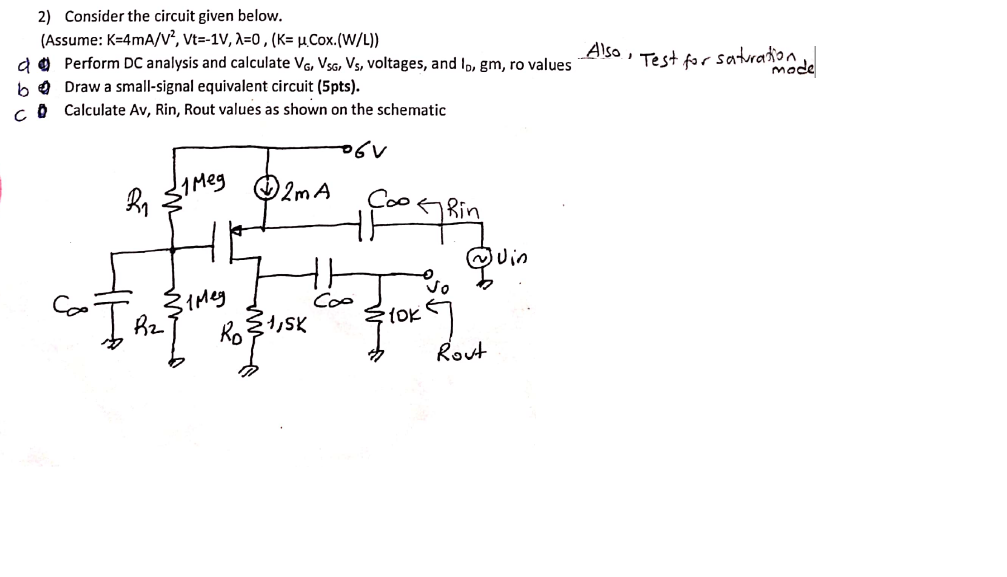 2) Consider the circuit given below.
(Assume: K=4mA/V², Vt=-1V, λ=0 , (K= μ.Cox.(W/L))
a Perform DC analysis and calculate VG, VSG, VS, voltages, and ID, gm, ro values Also, Test for saturation mode
b Draw a small-signal equivalent circuit (5pts).
c Calculate Av, Rin, Rout values as shown on the schematic
6V
1Meg
2mA
R1
C∞
Rin
Vin
Vo
C∞
1Meg
C∞
R2
RD
1,5K
10K
Rout